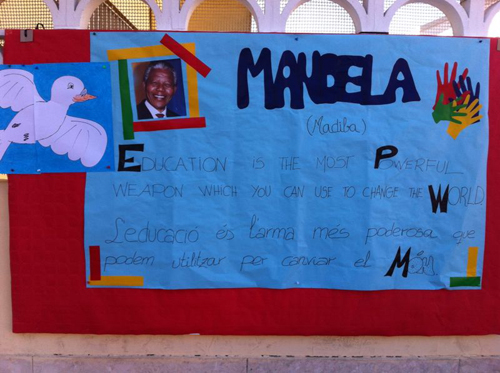 MANDELA
(Madiba)
EDUCATION IS THE MOST POWERFUL
WEAPON WHICH YOU CAN USE TO CHANGE THE WORLD
L'educació és l'arma més poderosa que
podem utilitzar per canviar el Món